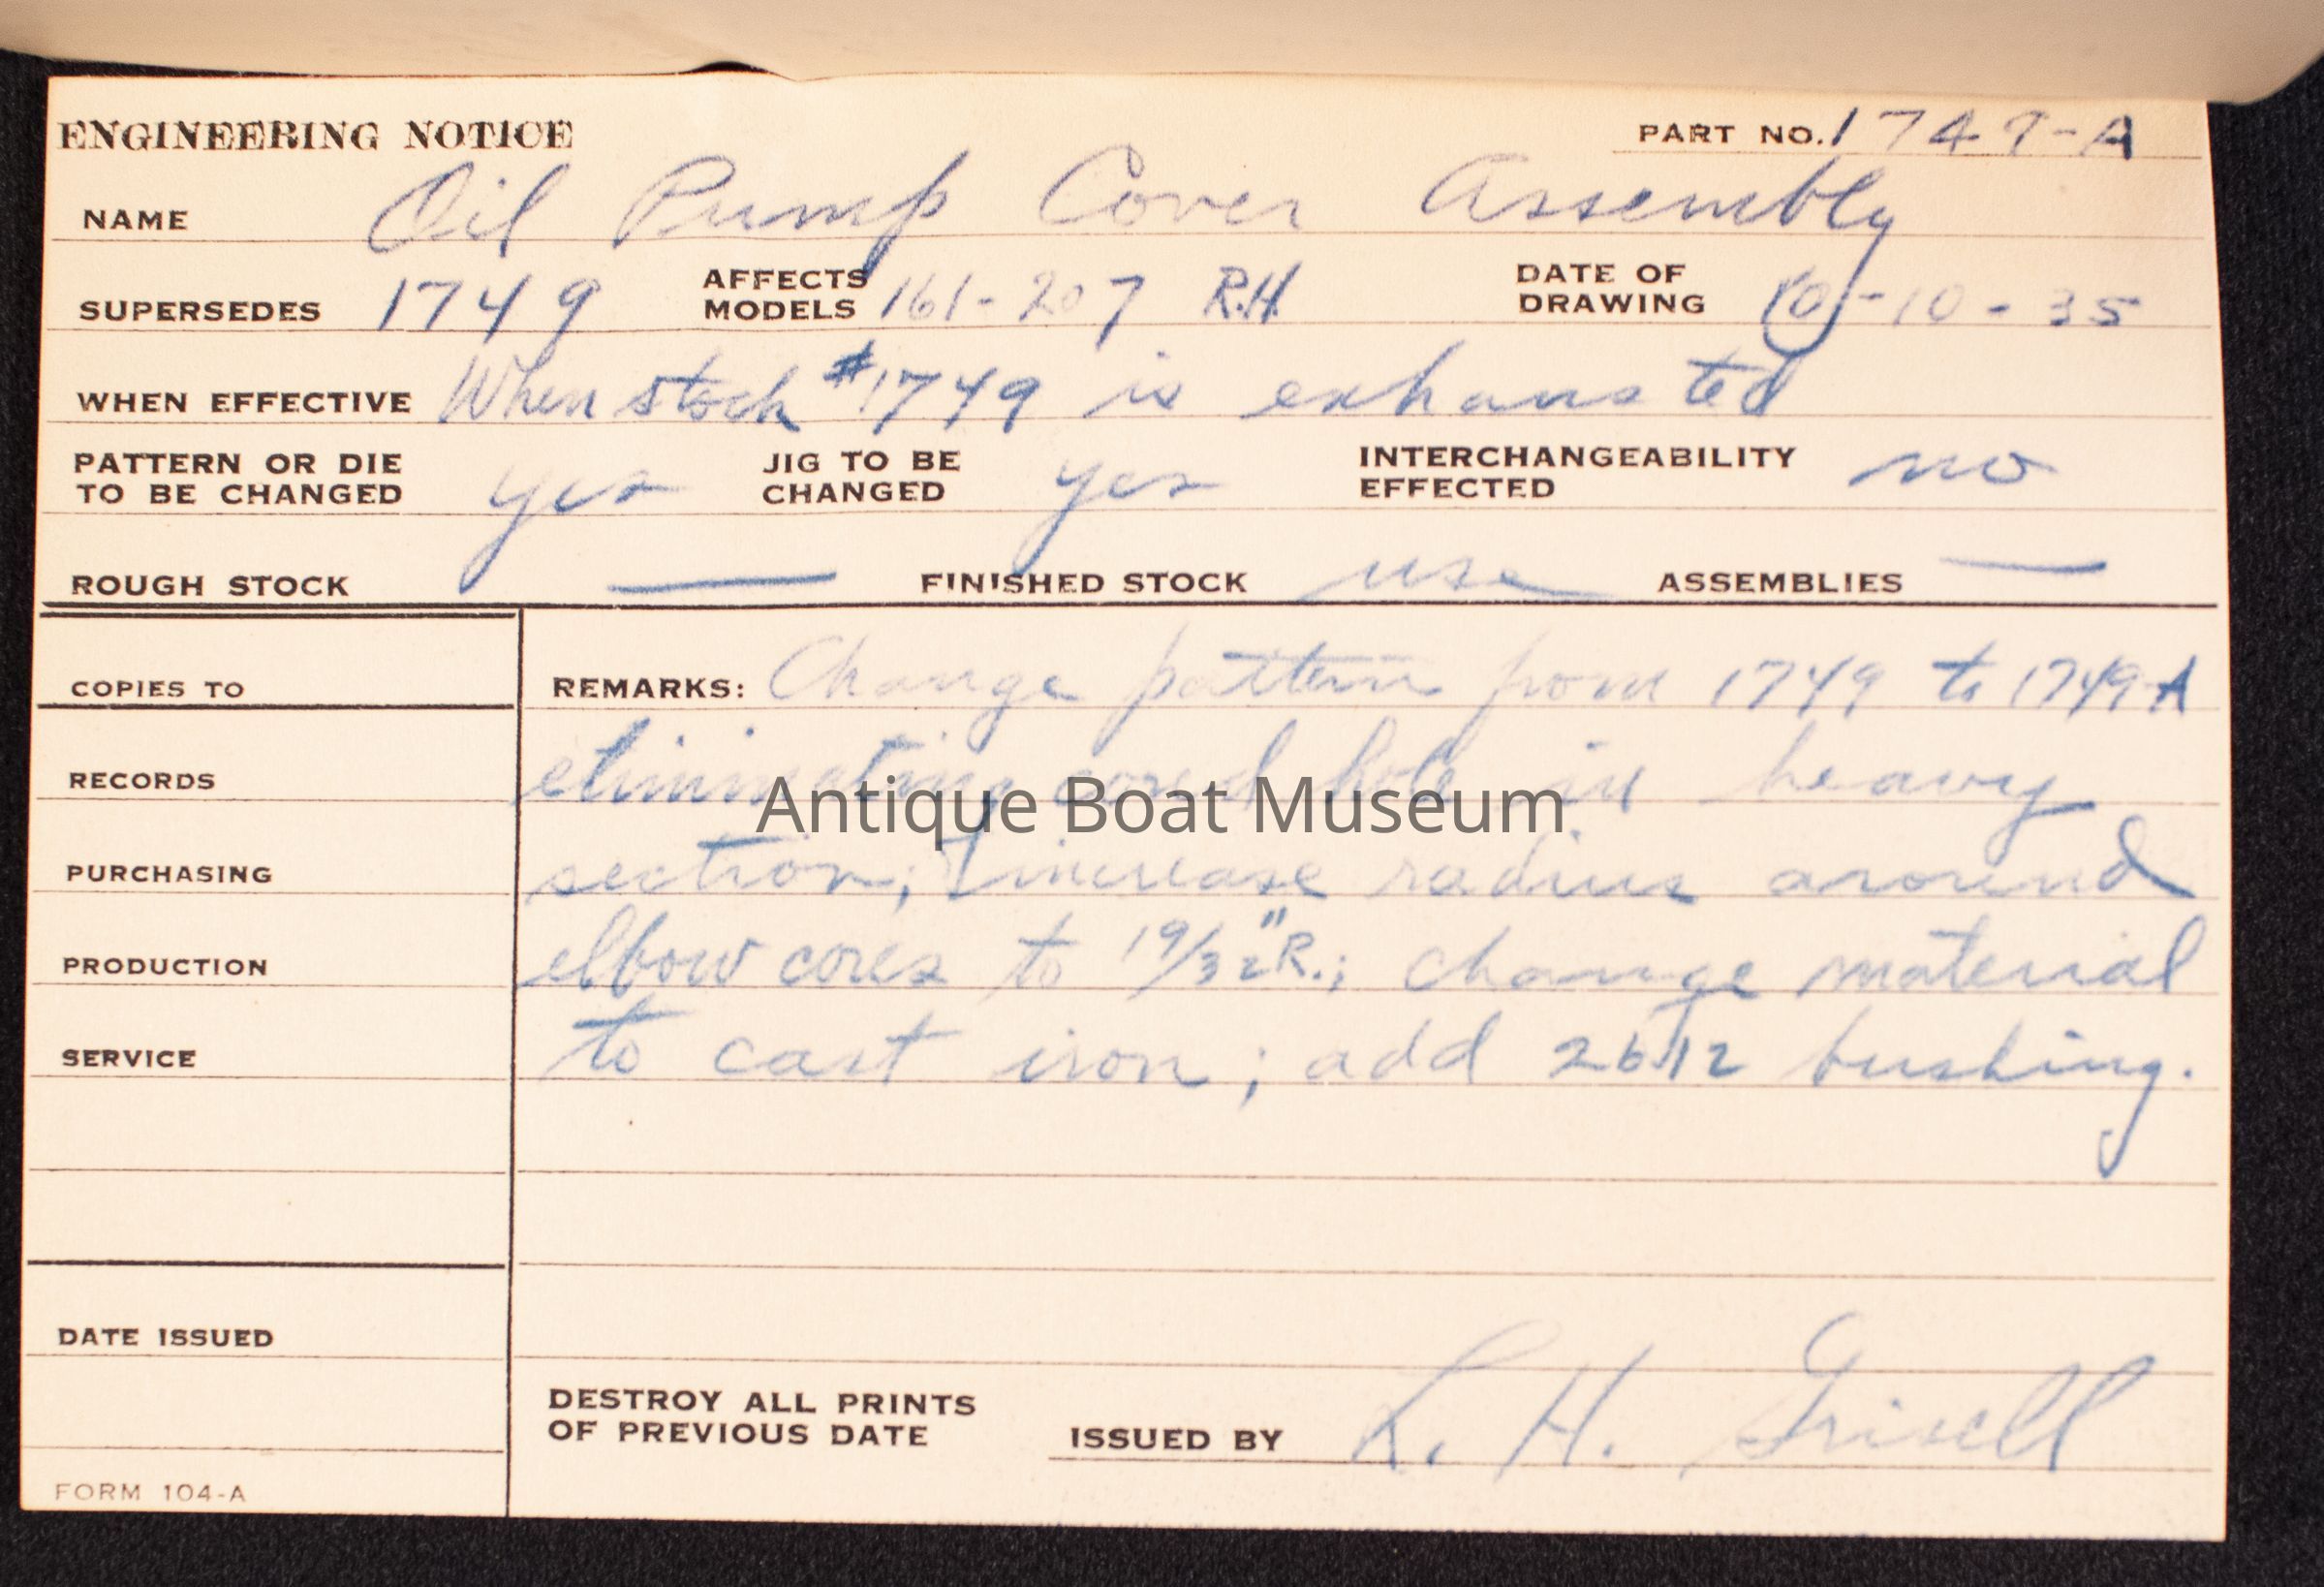 ENGINEERING NOTICE PART NO. 1749-A
NAME Oil Pump Cover Assembly
SUPERSEDES 1749 AFFECTS MODELS 161-207 R.H. DATE OF DRAWING 10-10-35
WHEN EFFECTIVE When stock #1749 is exhausted
PATTERN OR DIE TO BE CHANGED yes JIG TO BE CHANGED yes INTERCHANGEABILITY EFFECTED no
ROUGH STOCK — FINISHED STOCK use ASSEMBLIES —
COPIES TO
RECORDS
PURCHASING
PRODUCTION
SERVICE
DATE ISSUED
FORM 104-A
REMARKS: Change pattern from 1749 to 1749-A
eliminating cored hole in heavy
Antique Boat Museum
section; increase radius around
elbow cores to 19/32" R.; change material
to cast iron; add 2612 bushing.
DESTROY ALL PRINTS
OF PREVIOUS DATE
ISSUED BY L. H. Grisell